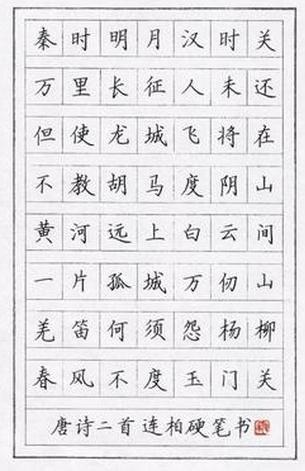 秦时明月汉时关
万里长征人未还
但使龙城飞将在
不教胡马度阴山
黄河远上白云间
一片孤城万仞山
羌笛何须怨杨柳
春风不度玉门关
唐诗二首连柏硬笔书